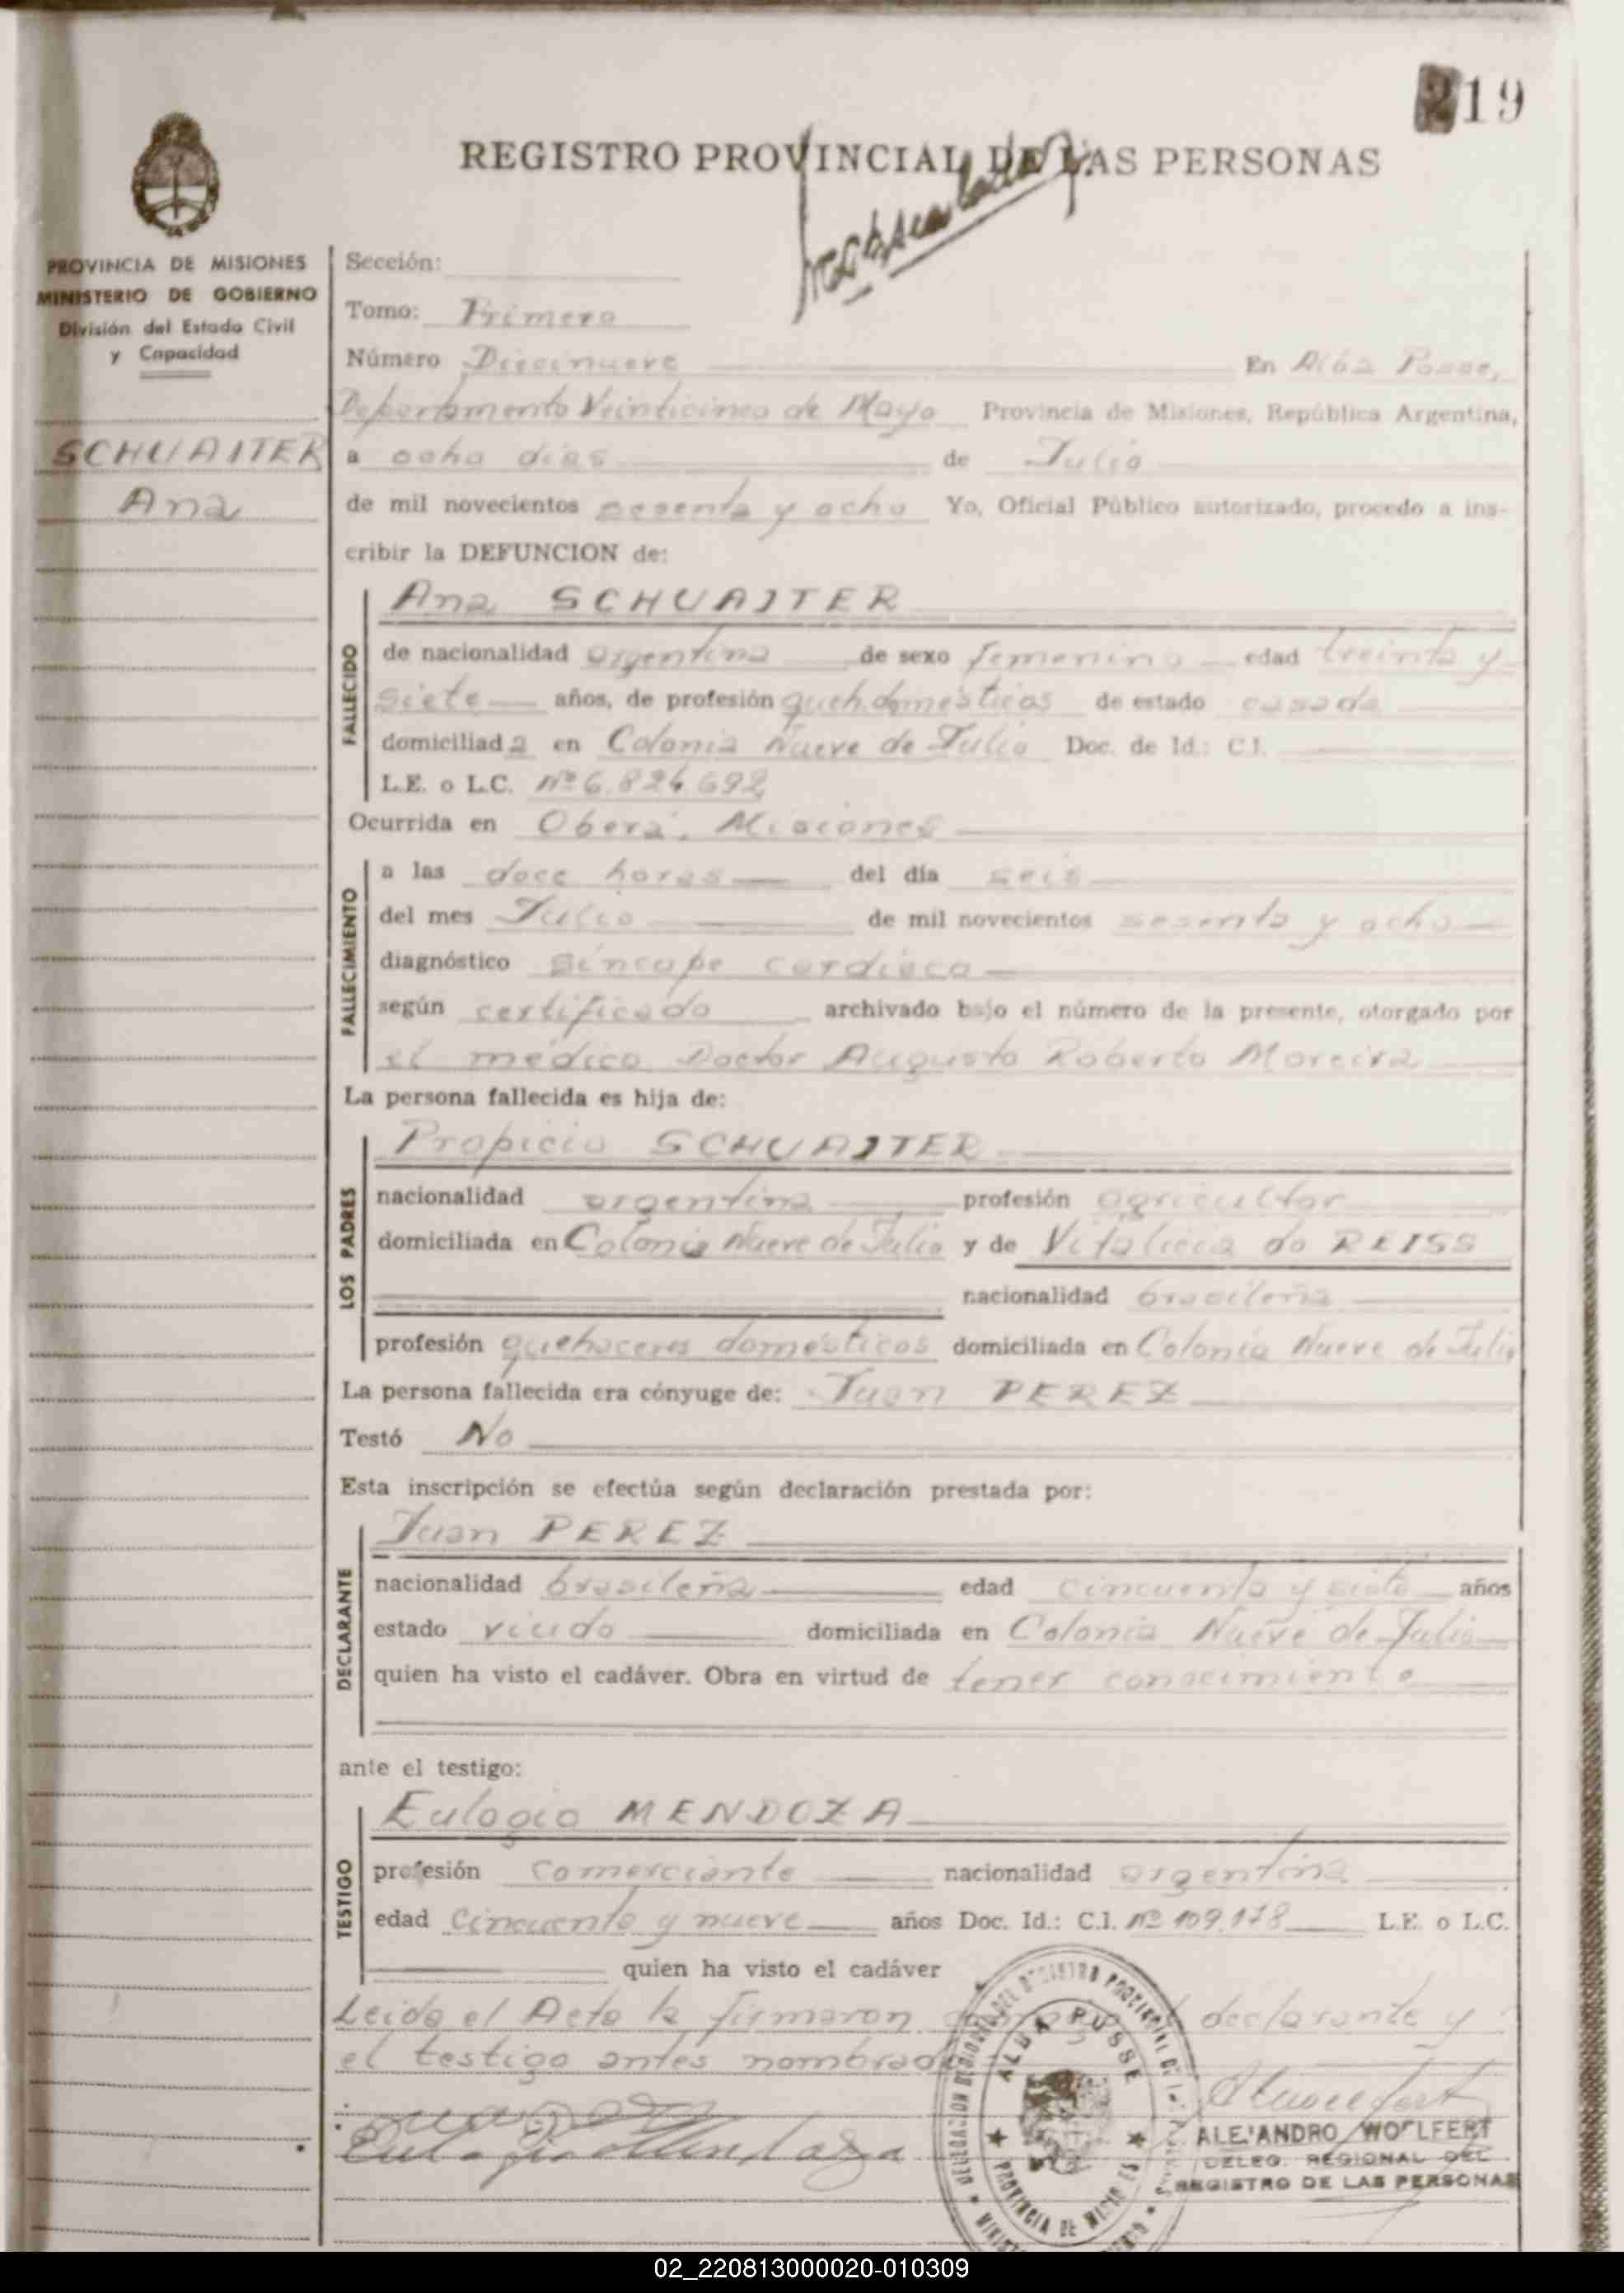 19
REGISTRO PROVINCIAL DE LAS PERSONAS
PROVINCIA DE MISIONES
MINISTERIO DE GOBIERNO
División del Estado Civil
y Capacidad
SCHUAITER
Ana
Sección:
Tomo: Primero
Número Diecinueve En Alba Posse,
Departamento Veinticinco de Mayo Provincia de Misiones, República Argentina,
a ocho días de Julio
de mil novecientos sesenta y ocho Yo, Oficial Público autorizado, procedo a ins-
cribir la DEFUNCION de:
FALLECIDO
Ana SCHUAITER
de nacionalidad argentina de sexo femenino edad treinta y
siete años, de profesión queh. domésticos de estado casada
domiciliad a en Colonia Nueve de Julio Doc. de Id.: C.I.
L.E. o L.C. Nº 6.824.692
Ocurrida en Oberá, Misiones
FALLECIMIENTO
a las doce horas del día seis
del mes Julio de mil novecientos sesenta y ocho
diagnóstico síncope cardíaca
según certificado archivado bajo el número de la presente, otorgado por
el médico Doctor Augusto Roberto Moreira
La persona fallecida es hija de:
LOS PADRES
Propicio SCHUAITER
nacionalidad argentina profesión agricultor
domiciliada en Colonia Nueve de Julio y de Vitalicia do REISS
nacionalidad brasileña
profesión quehaceres domésticos domiciliada en Colonia Nueve de Julio
La persona fallecida era cónyuge de: Juan PEREZ
Testó No
Esta inscripción se efectúa según declaración prestada por:
DECLARANTE
Juan PEREZ
nacionalidad brasileña edad cincuenta y siete años
estado viudo domiciliada en Colonia Nueve de Julio
quien ha visto el cadáver. Obra en virtud de tener conocimiento
ante el testigo:
TESTIGO
Eulogio MENDOZA
profesión comerciante nacionalidad argentina
edad cincuenta y nueve años Doc. Id.: C.I. Nº 109.178 L.E. o L.C.
quien ha visto el cadáver
Leída el Acta la firmaron declarante y
el testigo antes nombrado
ALBA POSSE
PROVINCIA DE MISIONES
ALEJANDRO WOLFERT
DELEG. REGIONAL DEL
REGISTRO DE LAS PERSONAS
02_220813000020-010309